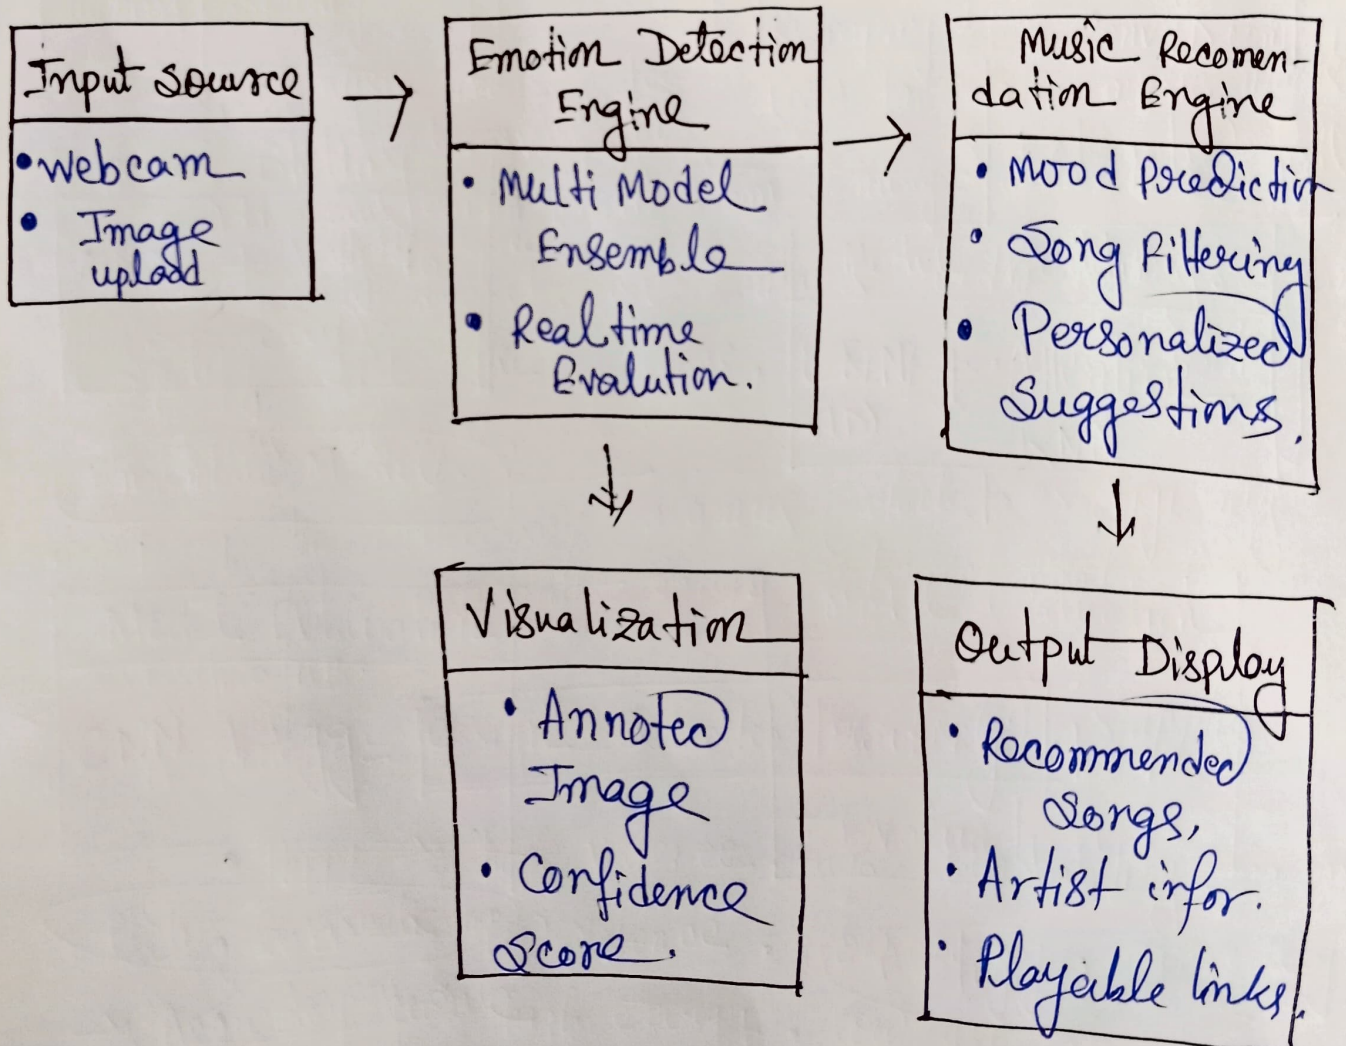 Input Source
• Webcam
• Image
upload
Emotion Detection
Engine
• Multi Model
Ensemble
• Realtime
Evalution.
Music Recomen-
dation Engine
• Mood Prediction
• Song Filtering
• Personalized
Suggestions.
Visualization
• Annoted
Image
• Confidence
Score.
Output Display
• Recommended
Songs,
• Artist infor.
• Playable links.